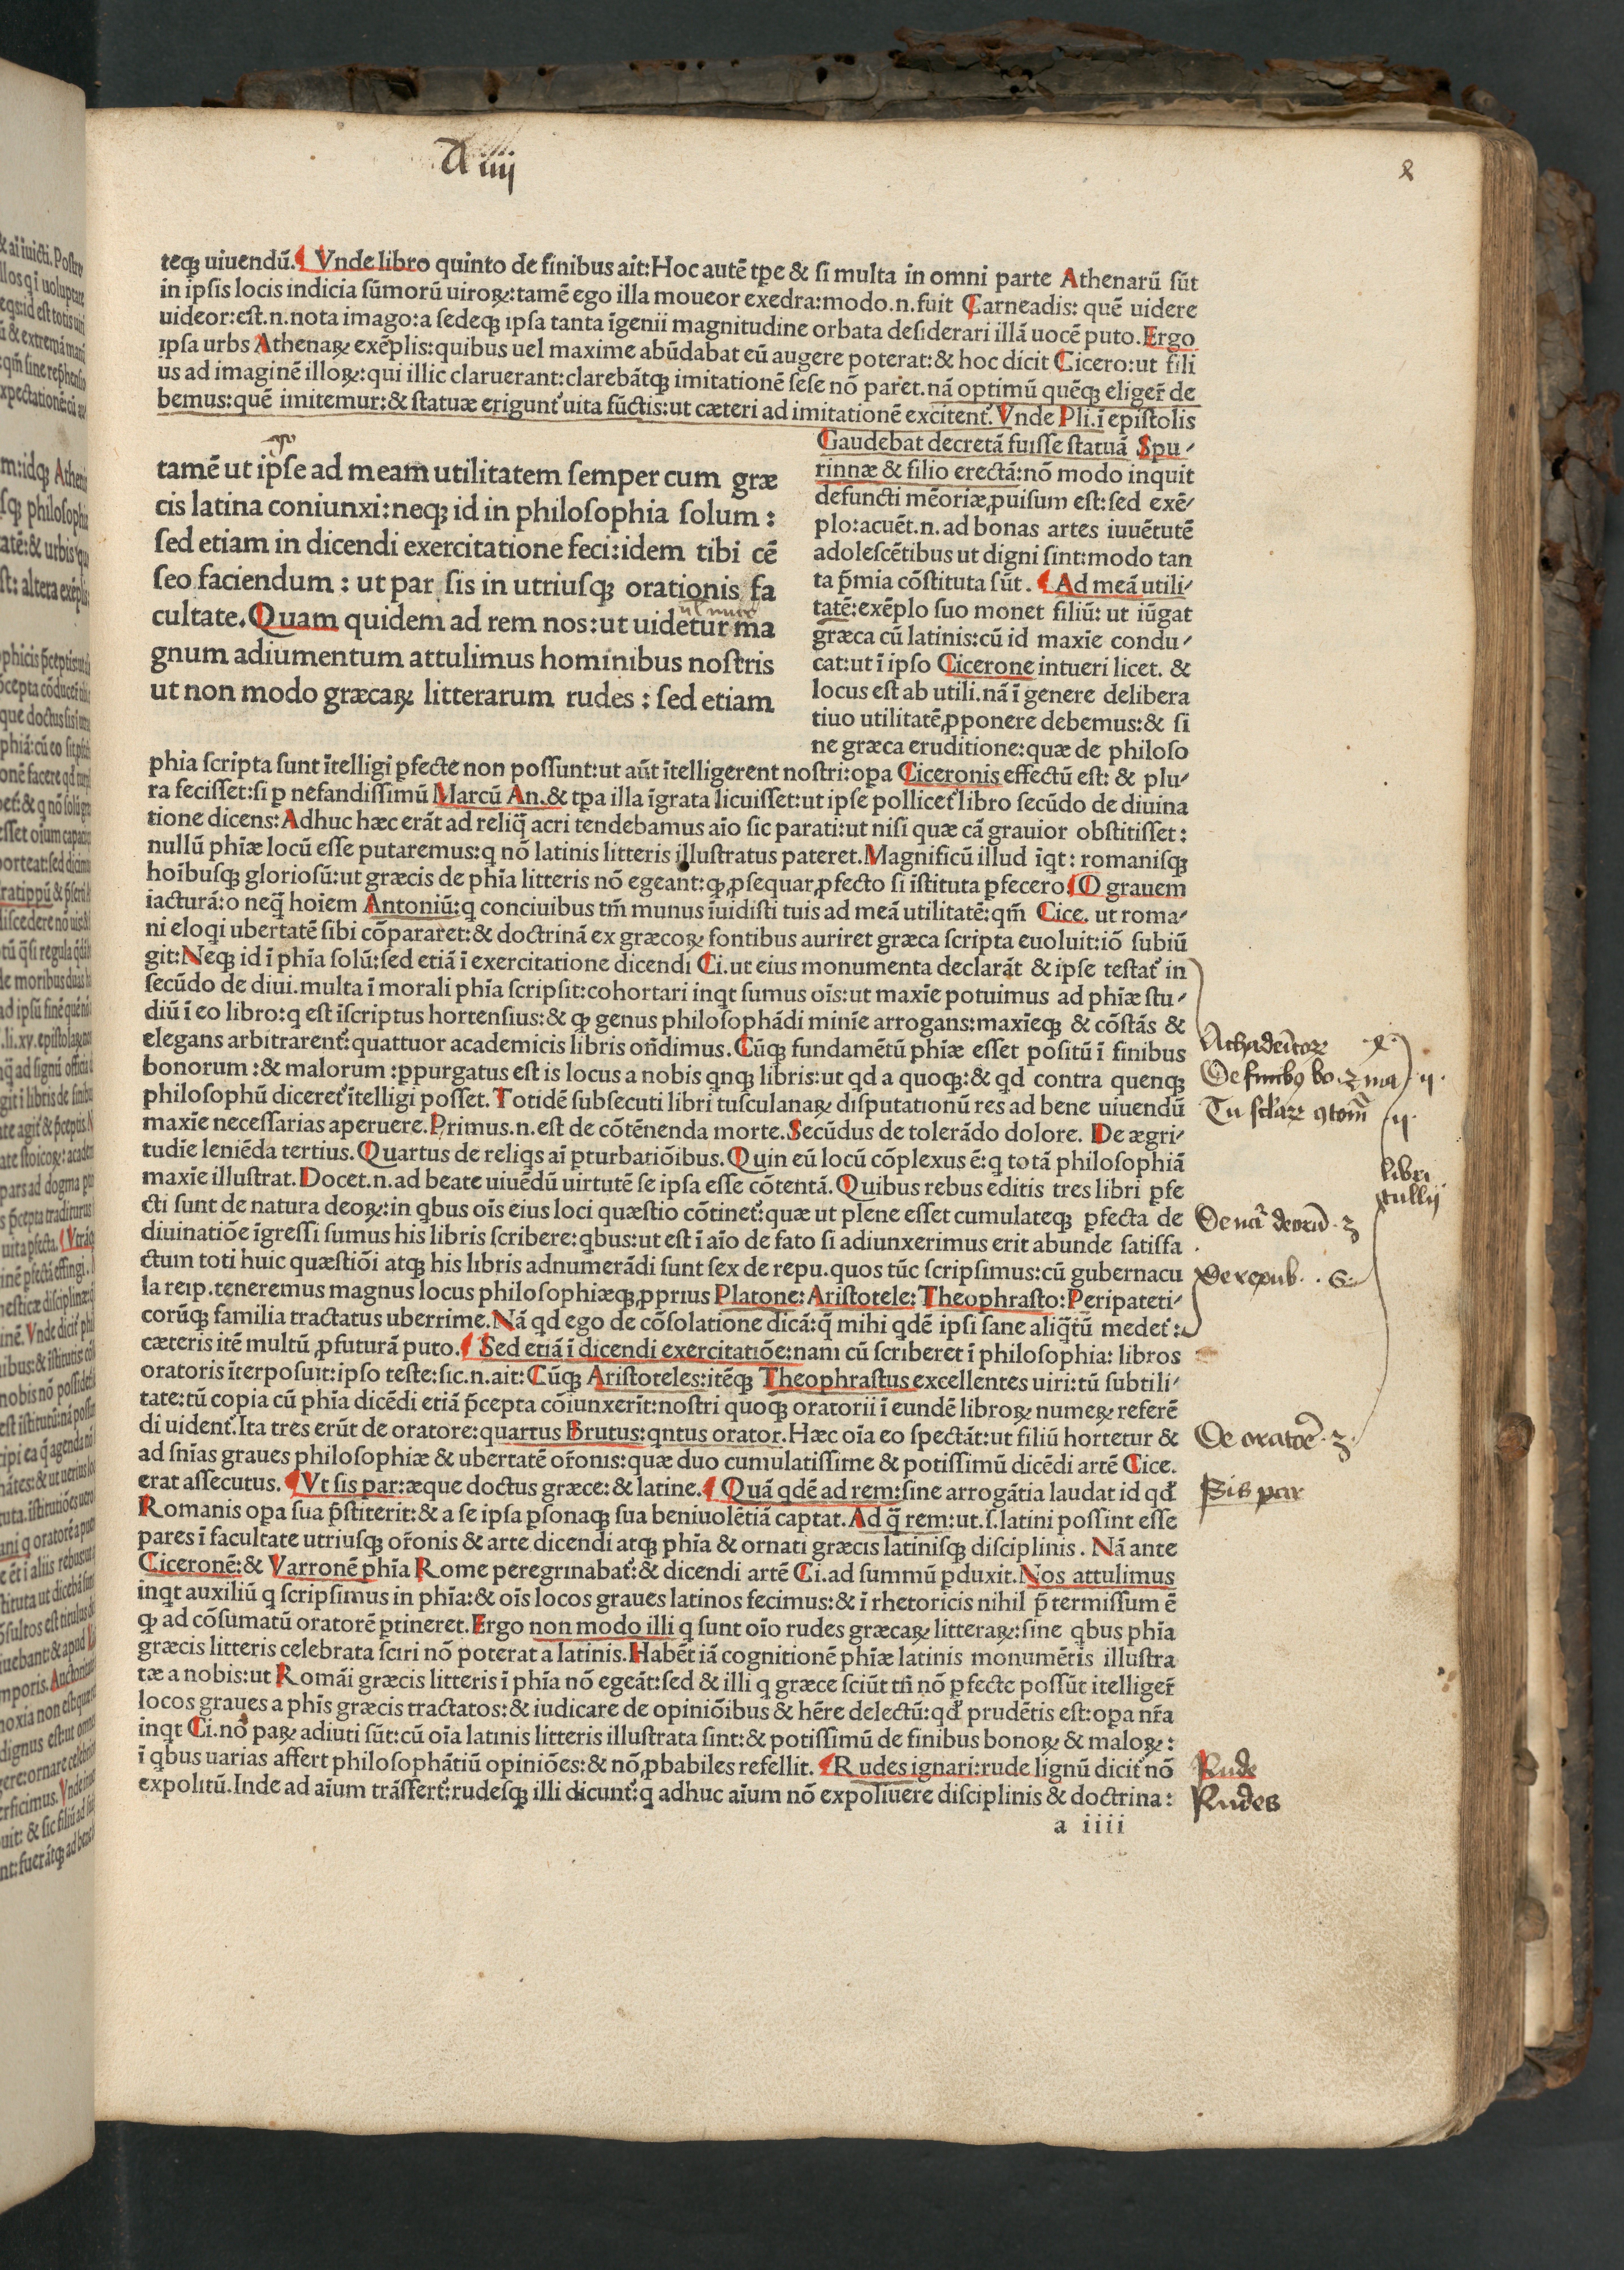 A iiij
teqꝫ uiuendũ. ¶ Vnde libro quinto de finibus ait: Hoc autẽ tꝑe & si multa in omni parte Athenarũ sũt
in ipsis locis indicia sũmorũ uiroꝝ: tamẽ ego illa moueor exedra: modo .n. fuit Carneadis: quẽ uidere
uideor: est .n. nota imago: a sedeqꝫ ipsa tanta ĩgenii magnitudine orbata desiderari illã uocẽ puto. Ergo
ipsa urbs Athenaꝝ exẽplis: quibus uel maxime abũdabat eũ augere poterat: & hoc dicit Cicero: ut fili
us ad imaginẽ illoꝝ: qui illic claruerant: clarebãtqꝫ imitationẽ sese nõ paret̃. nã optimũ quẽqꝫ eliger̃ de
bemus: quẽ imitemur: & statuæ erigunt᷑ uita fũctis: ut cæteri ad imitationẽ excitent᷑. Vnde Pli. ĩ epistolis
Gaudebat decretã fuisse statuã Spu-
rinnæ & filio erectã: nõ modo inquit
defuncti mẽoriæ ꝓuisum est: sed exẽ-
plo: acuẽt .n. ad bonas artes iuuẽtutẽ
adolescẽtibus ut digni sint: modo tan
ta p̃mia cõstituta sũt. ¶ Ad meã utili-
tatẽ: exẽplo suo monet filiũ: ut iũgat
græca cũ latinis: cũ id maxĩe condu-
cat: ut ĩ ipso Cicerone intueri licet. &
locus est ab utili. nã ĩ genere delibera
tiuo utilitatẽ ꝓponere debemus: & si
ne græca eruditione: quæ de philoso
tamẽ ut ipse ad meam utilitatem semper cum græ
cis latina coniunxi: neqꝫ id in philosophia solum :
sed etiam in dicendi exercitatione feci: idem tibi cẽ
seo faciendum : ut par sis in utriusqꝫ orationis fa
cultate. Quam quidem ad rem nos: ut uidetur ma
gnum adiumentum attulimus hominibus nostris
ut non modo græcaꝝ litterarum rudes : sed etiam
phia scripta sunt ĩtelligi ꝑfecte non possunt: ut aũt ĩtelligerent nostri: oꝑa Ciceronis effectũ est: & plu-
ra fecisset: si ꝑ nefandissimũ Marcũ An. & tꝑa illa ĩgrata licuisset: ut ipse pollicet᷑ libro secũdo de diuina
tione dicens: Adhuc hæc erãt ad reliq̃ acri tendebamus aĩo sic parati: ut nisi quæ cã grauior obstitisset :
nullũ phĩæ locũ esse putaremus: q nõ latinis litteris illustratus pateret. Magnificũ illud ĩqt : romanisqꝫ
hoĩbusqꝫ gloriosũ: ut græcis de phĩa litteris nõ egeant: qꝫ ꝓsequar ꝓfecto si ĩstituta ꝑfecero. ¶ O grauem
iacturã: o neq̃ hoĩem Antoniũ: q conciuibus tm̃ munus ĩuidisti tuis ad meã utilitatẽ: qm̃ Cice. ut roma-
ni eloqi ubertatẽ sibi cõpararet: & doctrinã ex græcoꝝ fontibus auriret græca scripta euoluit: iõ subiũ
git: Neqꝫ id ĩ phĩa solũ: sed etiã ĩ exercitatione dicendi Ci. ut eius monumenta declarãt & ipse testat᷑ in
secũdo de diui. multa ĩ morali phĩa scripsit: cohortari inqt sumus oĩs: ut maxĩe potuimus ad phĩæ stu-
diũ ĩ eo libro: q est ĩscriptus hortensius: & qꝫ genus philosophãdi minĩe arrogans: maxĩeqꝫ & cõstãs &
elegans arbitrarent᷑: quattuor academicis libris oñdimus. Cũqꝫ fundamẽtũ phĩæ esset positũ ĩ finibus
bonorum : & malorum : ꝑpurgatus est is locus a nobis qnqꝫ libris: ut qd a quoqꝫ: & qd contra quenqꝫ
philosophũ diceret᷑ ĩtelligi posset. Totidẽ subsecuti libri tusculanaꝝ disputationũ res ad bene uiuendũ
maxĩe necessarias aperuere. Primus .n. est de cõtẽnenda morte. Secũdus de tolerãdo dolore. De ægri-
tudĩe leniẽda tertius. Quartus de reliqs aĩ ꝑturbatiõibus. Quin eũ locũ cõplexus ẽ: q totã philosophiã
maxĩe illustrat. Docet .n. ad beate uiuẽdũ uirtutẽ se ipsa esse cõtentã. Quibus rebus editis tres libri ꝑfe
cti sunt de natura deoꝝ: in qbus oĩs eius loci quæstio cõtinet᷑: quæ ut plene esset cumulateqꝫ ꝑfecta de
diuinatiõe ĩgressi sumus his libris scribere: qbus: ut est ĩ aĩo de fato si adiunxerimus erit abunde satisfa
ctum toti huic quæstiõi atqꝫ his libris adnumerãdi sunt sex de repu. quos tũc scripsimus: cũ gubernacu
la reip. teneremus magnus locus philosophiæqꝫ ꝓprius Platone: Aristotele: Theophrasto: Peripateti-
corũqꝫ familia tractatus uberrime. Nã qd ego de cõsolatione dicã: q̃ mihi qdẽ ipsi sane aliq̃tũ medet᷑ :
cæteris itẽ multũ ꝓfuturã puto. ¶ Sed etiã ĩ dicendi exercitatiõe: nam cũ scriberet ĩ philosophia: libros
oratoris ĩterposuit: ipso teste: sic .n. ait: Cũqꝫ Aristoteles: itẽqꝫ Theophrastus excellentes uiri: tũ subtili-
tate: tũ copia cũ phĩa dicẽdi etiã p̃cepta cõiunxerĩt: nostri quoqꝫ oratorii ĩ eundẽ libroꝝ numeꝝ referẽ
di uident᷑. Ita tres erũt de oratore: quartus Brutus: qntus orator. Hæc oĩa eo spectãt: ut filiũ hortetur &
ad sñias graues philosophiæ & ubertatẽ or̃onis: quæ duo cumulatissime & potissimũ dicẽdi artẽ Cice.
erat assecutus. ¶ Vt sis par: æque doctus græce: & latine. ¶ Quã qdẽ ad rem: sine arrogãtia laudat id qd
Romanis oꝑa sua p̃stiterit: & a se ipsa ꝑsonaqꝫ sua beniuolẽtiã captat. Ad q̃ rem: ut .s. latini possint esse
pares ĩ facultate utriusqꝫ or̃onis & arte dicendi atqꝫ phĩa & ornati græcis latinisqꝫ disciplinis. Nã ante
Ciceronẽ: & Varronẽ phĩa Rome peregrinabat᷑: & dicendi artẽ Ci. ad summũ ꝑduxit. Nos attulimus
inqt auxiliũ q scripsimus in phĩa: & oĩs locos graues latinos fecimus: & ĩ rhetoricis nihil p̃ termissum ẽ
qꝫ ad cõsumatũ oratorẽ ꝑtineret. Ergo non modo illi q sunt oĩo rudes græcaꝝ litteraꝝ: sine qbus phĩa
græcis litteris celebrata sciri nõ poterat a latinis. Habẽt iã cognitionẽ phĩæ latinis monumẽtis illustra
tæ a nobis: ut Romãi græcis litteris ĩ phĩa nõ egeãt: sed & illi q græce sciũt tñ nõ ꝑfecte possũt itelliger̃
locos graues a phis græcis tractatos: & iudicare de opiniõibus & hẽre delectũ: qd prudẽtis est: oꝑa nr̃a
inqt Ci. nõ paꝝ adiuti sũt: cũ oĩa latinis litteris illustrata sint: & potissimũ de finibus bonoꝝ & maloꝝ :
ĩ qbus uarias affert philosophãtiũ opiniões: & nõ ꝓbabiles refellit. ¶ Rudes ignari: rude lignũ dicit᷑ nõ
expolitũ. Inde ad aĩum trãsfert᷑: rudesqꝫ illi dicunt᷑: q adhuc aĩum nõ expoliuere disciplinis & doctrina :
a iiii
De finibꝰ bo. ꝫ ma
libri
tullij
De nã deorũ · 3
De repub. · 6
De oratoẽ · 3
Sis par
Rude
Rudes